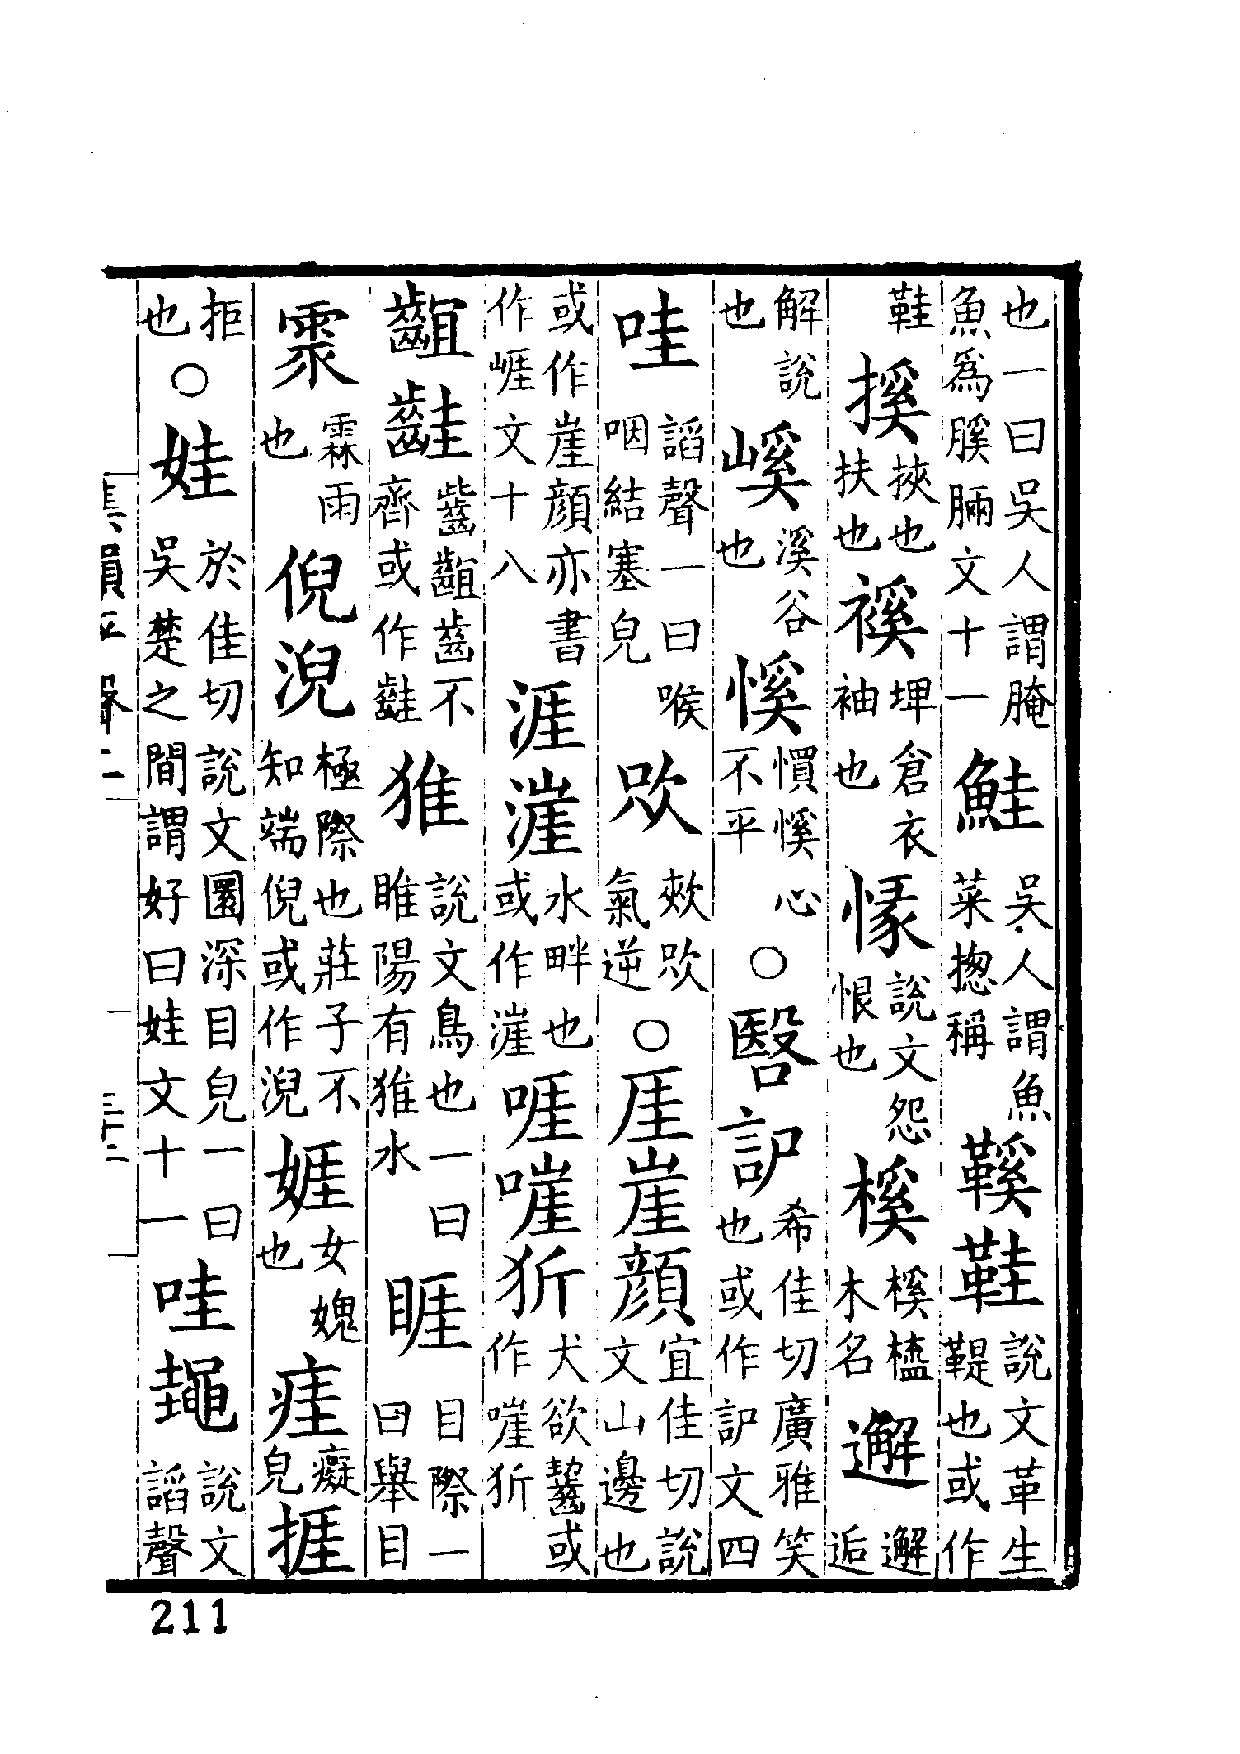 也一曰吳人謂腌魚爲膎脼文十一鮭吳人謂魚菜揔稱鞵鞋說文革生鞮也或作
鞋㨙挾也扶也埤倉衣袖也㥟說文怨恨也榽榽橀木名邂邂逅
解說也嵠溪谷也慀慣慀心不平○希佳切廣雅笑也或作文四
哇謟聲一曰喉咽結塞皃氣逆○厓崖顔宜佳切說文山邊也
或作崖顔亦書作崕文十八涯漄水畔也或作漄啀嘊㹞犬欲齧或作嘊㹞
齟齜齟齒不齊或作猚說文鳥也一曰睢陽有猚水睚目際一曰舉目
霖雨也倪淣極際也莊子不知端倪或作淣娾女媿也㾏癡皃捱
拒也○娃於佳切說文圜深目皃一曰吳楚之間謂好曰娃文十一哇䵷說文謟聲
集韻平聲二 三十二
211